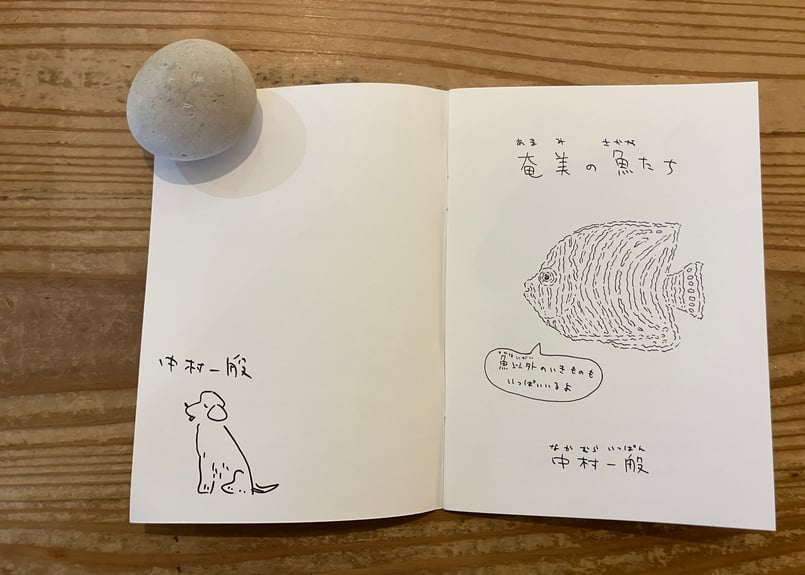 中村一般
あまみ さかな
奄美の魚たち
さかないがい
魚以外のいきものも
いっぱいいるよ
なかむら いっぱん
中村一般